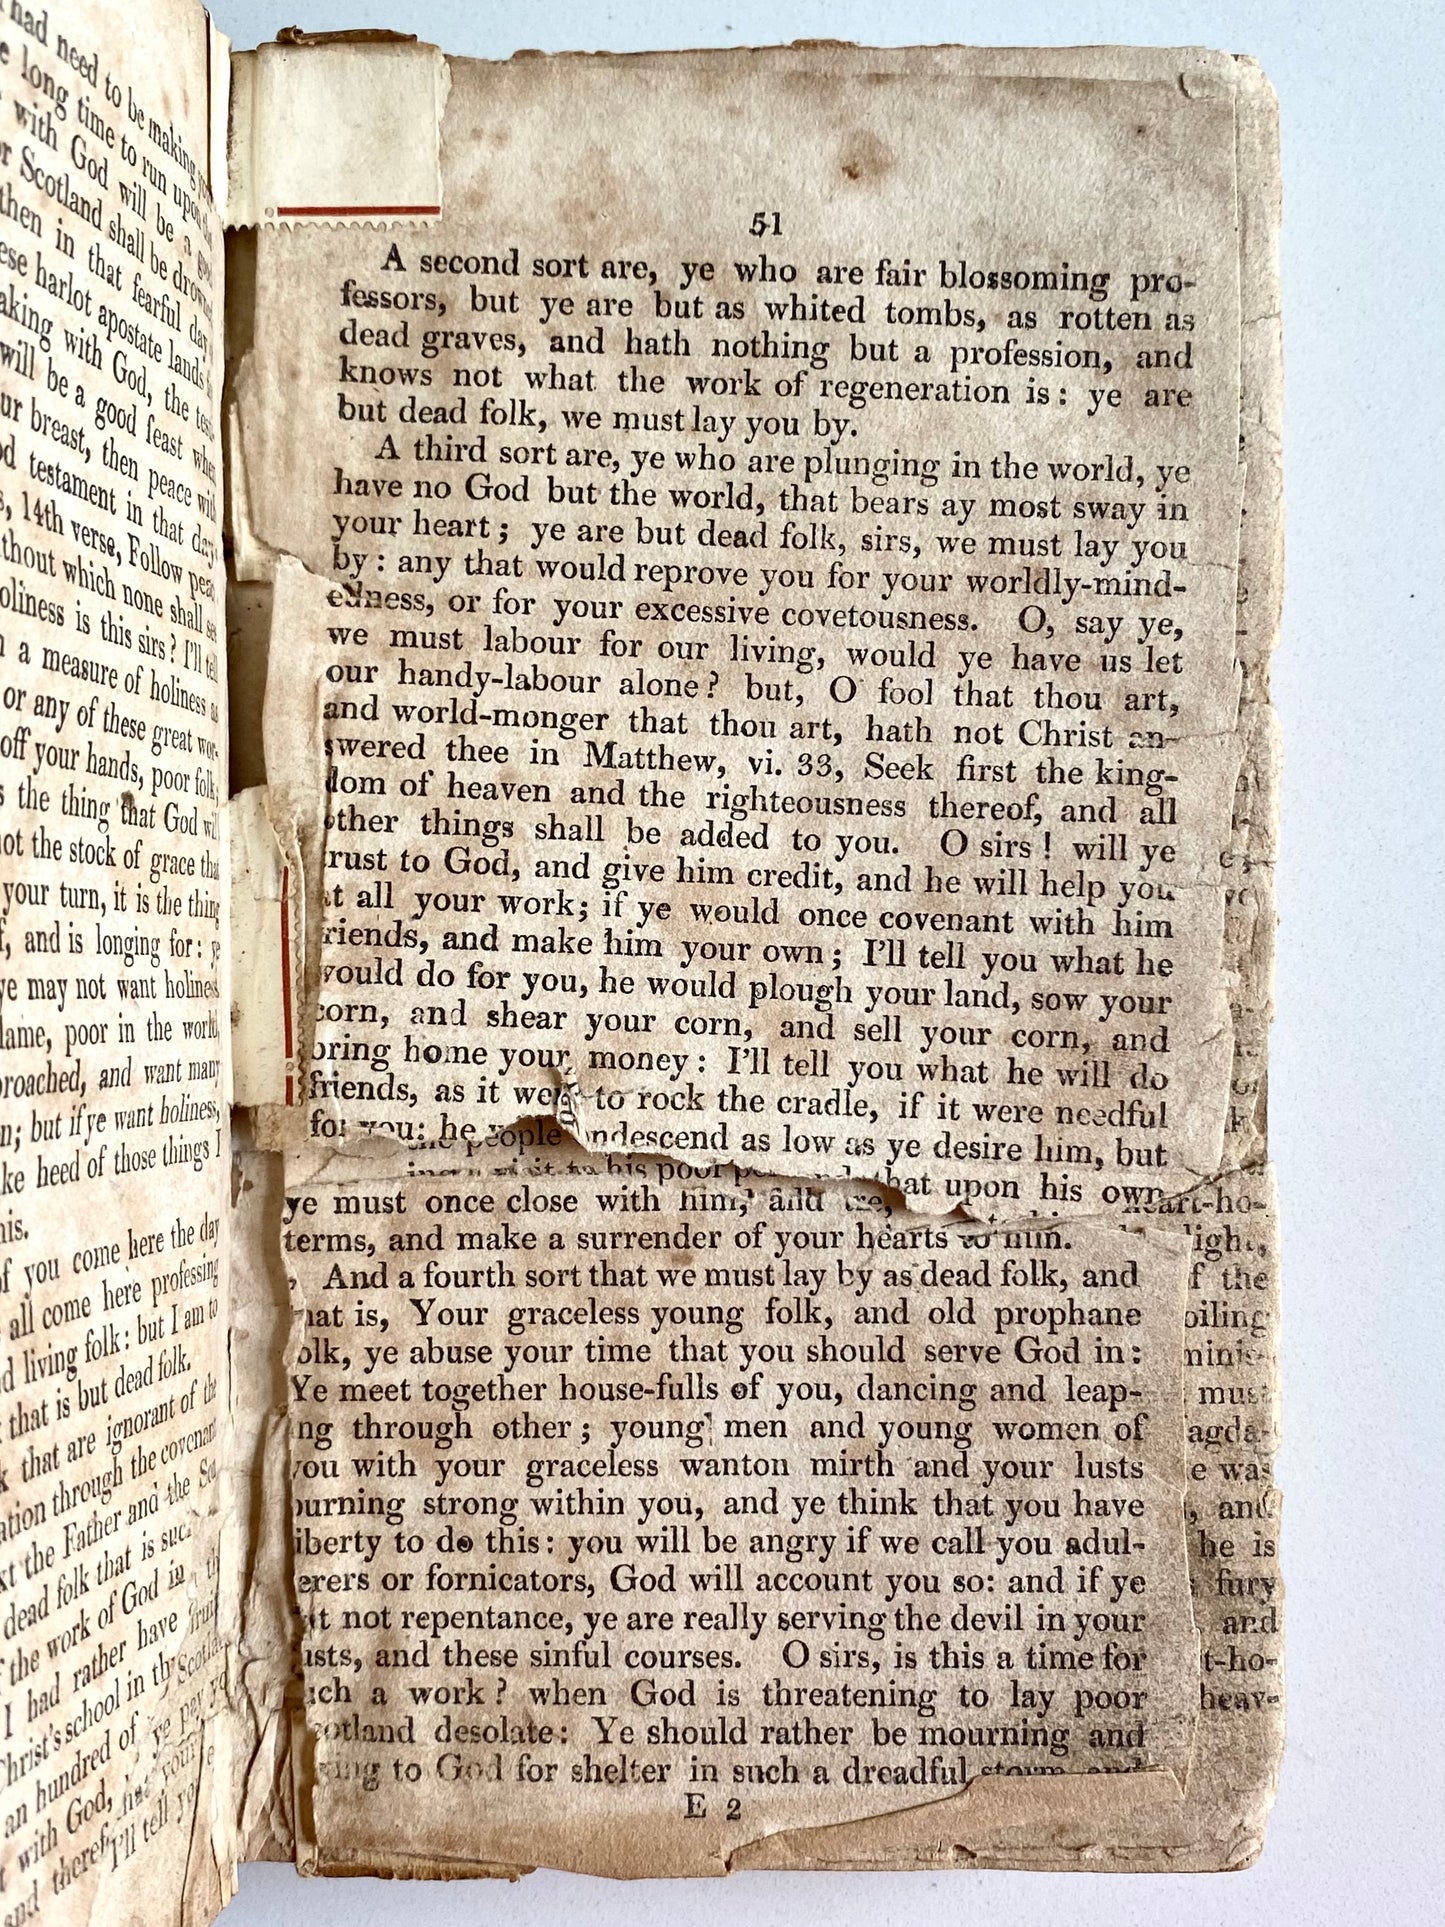 had need to be making
long time to run upon the
with God will be a good
Scotland shall be drowned
then in that fearful day
harlot apostate lands
making with God, the
will be a good feast when
breast, then peace with
testament in that day
14th verse, Follow peace
without which none shall see
holiness is this sirs? I'll tell
a measure of holiness as
or any of these great
off your hands, poor folk,
the thing that God will
not the stock of grace that
your turn, it is the thing
and is longing for: ye
ye may not want holiness
lame, poor in the world,
and want many
but if ye want holiness,
heed of those things I
this.
of you come here the day
all come here professing
living folk: but I am to
that is but dead folk.
that are ignorant of the
through the covenant
the Father and the
dead folk that is
the work of God in
I had rather have
Christ's school in
an hundred of ye pay
with God,
and
I'll tell
51
A second sort are, ye who are fair blossoming pro-
fessors, but ye are but as whited tombs, as rotten as
dead graves, and hath nothing but a profession, and
knows not what the work of regeneration is: ye are
but dead folk, we must lay you by.
A third sort are, ye who are plunging in the world, ye
have no God but the world, that bears ay most sway in
your heart; ye are but dead folk, sirs, we must lay you
by: any that would reprove you for your worldly-mind-
edness, or for your excessive covetousness. O, say ye,
we must labour for our living, would ye have us let
our handy-labour alone? but, O fool that thou art,
and world-monger that thou art, hath not Christ an-
swered thee in Matthew, vi. 33, Seek first the king-
dom of heaven and the righteousness thereof, and all
other things shall be added to you. O sirs! will ye
trust to God, and give him credit, and he will help you
at all your work; if ye would once covenant with him
friends, and make him your own; I'll tell you what he
would do for you, he would plough your land, sow your
corn, and shear your corn, and sell your corn, and
bring home your money: I'll tell you what he will do
friends, as it were to rock the cradle, if it were needful
for you: he condescend as low as ye desire him, but
that upon his own
ye must once close with him, and
terms, and make a surrender of your hearts to him.
And a fourth sort that we must lay by as dead folk, and
that is, Your graceless young folk, and old prophane
folk, ye abuse your time that you should serve God in:
Ye meet together house-fulls of you, dancing and leap-
ing through other; young men and young women of
you with your graceless wanton mirth and your lusts
burning strong within you, and ye think that you have
liberty to do this: you will be angry if we call you adul-
terers or fornicators, God will account you so: and if ye
not repentance, ye are really serving the devil in your
lusts, and these sinful courses. O sirs, is this a time for
such a work? when God is threatening to lay poor
Scotland desolate: Ye should rather be mourning and
to God for shelter in such a dreadful storm and
E 2
heart-ho-
light,
of the
must
he was
and
he is
fury
and
heav-